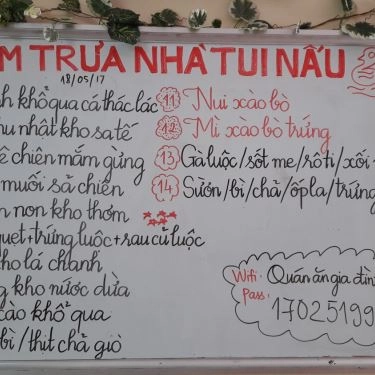 M TRƯA NHÀ TUI NẤU
18/05/17
h khổ qua cá thác lác
hu nhật kho sa tế
ê chiên mắm gừng
muối sả chiên
n non kho thơm
quẹt+trứng luộc+rau củ luộc
kho lá chanh
g kho nước dừa
xào khổ qua
bì/thịt chả giò
11 Nui xào bò
12 Mì xào bò trứng
13 Gà luộc/sốt me/rôti/xối
14 Sườn/bì/chả/ốpla/trứng
Wifi: Quán ăn gia đìn
Pass: 17025199